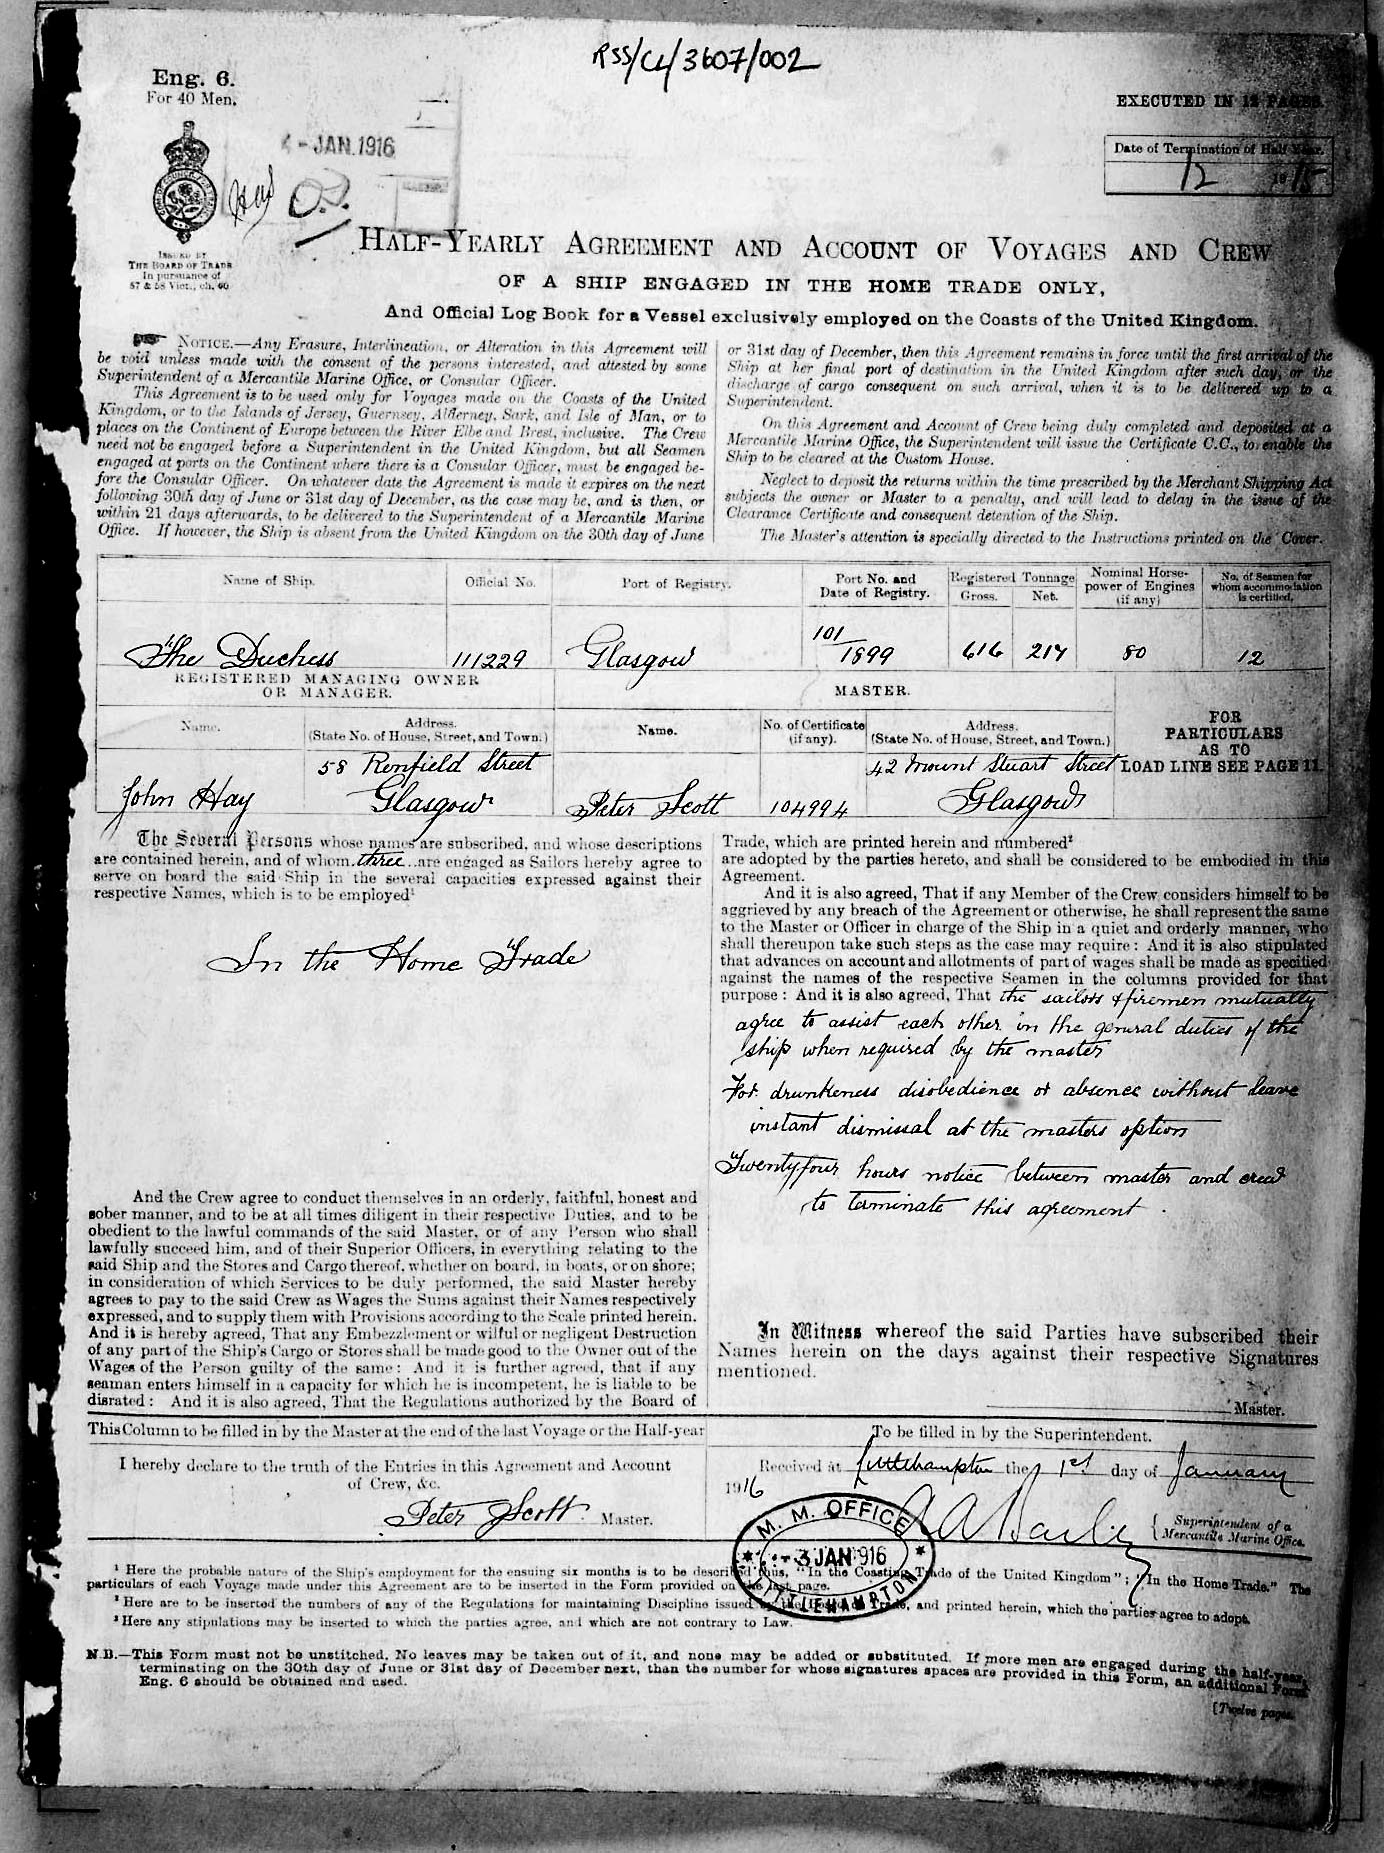 RSS/CL/3607/002
Eng. 6.
For 40 Men.
EXECUTED IN 12 PAGES.
- JAN. 1916
Date of Termination of Half Year.
12 1915
ISSUED BY
THE BOARD OF TRADE
In pursuance of
57 & 58 Vict., ch. 60
HALF-YEARLY AGREEMENT AND ACCOUNT OF VOYAGES AND CREW
OF A SHIP ENGAGED IN THE HOME TRADE ONLY,
And Official Log Book for a Vessel exclusively employed on the Coasts of the United Kingdom.
NOTICE.—Any Erasure, Interlineation, or Alteration in this Agreement will
be void unless made with the consent of the persons interested, and attested by some
Superintendent of a Mercantile Marine Office, or Consular Officer.
This Agreement is to be used only for Voyages made on the Coasts of the United
Kingdom, or to the Islands of Jersey, Guernsey, Alderney, Sark, and Isle of Man, or to
places on the Continent of Europe between the River Elbe and Brest, inclusive. The Crew
need not be engaged before a Superintendent in the United Kingdom, but all Seamen
engaged at ports on the Continent where there is a Consular Officer, must be engaged be-
fore the Consular Officer. On whatever date the Agreement is made it expires on the next
following 30th day of June or 31st day of December, as the case may be, and is then, or
within 21 days afterwards, to be delivered to the Superintendent of a Mercantile Marine
Office. If however, the Ship is absent from the United Kingdom on the 30th day of June
or 31st day of December, then this Agreement remains in force until the first arrival of the
Ship at her final port of destination in the United Kingdom after such day, or the
discharge of cargo consequent on such arrival, when it is to be delivered up to a
Superintendent.
On this Agreement and Account of Crew being duly completed and deposited at a
Mercantile Marine Office, the Superintendent will issue the Certificate C.C., to enable the
Ship to be cleared at the Custom House.
Neglect to deposit the returns within the time prescribed by the Merchant Shipping Act
subjects the owner or Master to a penalty, and will lead to delay in the issue of the
Clearance Certificate and consequent detention of the Ship.
The Master's attention is specially directed to the Instructions printed on the Cover.
Name of Ship. Official No. Port of Registry. Port No. and Date of Registry. Registered Tonnage Gross. Net. Nominal Horse-power of Engines (if any) No. of Seamen for whom accommodation is certified.
The Duchess 111229 Glasgow 101/1899 616 217 80 12
REGISTERED MANAGING OWNER
OR MANAGER.
MASTER.
Name. Address. (State No. of House, Street, and Town.) Name. No. of Certificate (if any). Address. (State No. of House, Street, and Town.)
FOR
PARTICULARS
AS TO
LOAD LINE SEE PAGE 11.
58 Renfield Street 42 Mount Stuart Street
John Hay Glasgow Peter Scott 104994 Glasgow
The Several Persons whose names are subscribed, and whose descriptions
are contained herein, and of whom three are engaged as Sailors hereby agree to
serve on board the said Ship in the several capacities expressed against their
respective Names, which is to be employed¹
In the Home Trade
And the Crew agree to conduct themselves in an orderly, faithful, honest and
sober manner, and to be at all times diligent in their respective Duties, and to be
obedient to the lawful commands of the said Master, or of any Person who shall
lawfully succeed him, and of their Superior Officers, in everything relating to the
said Ship and the Stores and Cargo thereof, whether on board, in boats, or on shore;
in consideration of which Services to be duly performed, the said Master hereby
agrees to pay to the said Crew as Wages the Sums against their Names respectively
expressed, and to supply them with Provisions according to the Scale printed herein.
And it is hereby agreed, That any Embezzlement or wilful or negligent Destruction
of any part of the Ship's Cargo or Stores shall be made good to the Owner out of the
Wages of the Person guilty of the same: And it is further agreed, that if any
seaman enters himself in a capacity for which he is incompetent, he is liable to be
disrated: And it is also agreed, That the Regulations authorized by the Board of
Trade, which are printed herein and numbered²
are adopted by the parties hereto, and shall be considered to be embodied in this
Agreement.
And it is also agreed, That if any Member of the Crew considers himself to be
aggrieved by any breach of the Agreement or otherwise, he shall represent the same
to the Master or Officer in charge of the Ship in a quiet and orderly manner, who
shall thereupon take such steps as the case may require: And it is also stipulated
that advances on account and allotments of part of wages shall be made as specified
against the names of the respective Seamen in the columns provided for that
purpose: And it is also agreed, That the sailors & firemen mutually
agree to assist each other in the general duties of the
ship when required by the master
For drunkeness disobedience or absence without leave
instant dismissal at the masters option
Twentyfour hours notice between master and crew
to terminate this agreement.
In Witness whereof the said Parties have subscribed their
Names herein on the days against their respective Signatures
mentioned.
Master.
This Column to be filled in by the Master at the end of the last Voyage or the Half-year
I hereby declare to the truth of the Entries in this Agreement and Account
of Crew, &c.
Peter Scott Master.
To be filled in by the Superintendent.
Received at Littlehampton the 1st day of January
1916
Superintendent of a
Mercantile Marine Office.
M. M. OFFICE
- 3 JAN 1916
LITTLEHAMPTON
¹ Here the probable nature of the Ship's employment for the ensuing six months is to be described thus, "In the Coasting Trade of the United Kingdom"; "In the Home Trade." The
particulars of each Voyage made under this Agreement are to be inserted in the Form provided on the last page.
² Here are to be inserted the numbers of any of the Regulations for maintaining Discipline issued by the Board of Trade, and printed herein, which the parties agree to adopt.
³ Here any stipulations may be inserted to which the parties agree, and which are not contrary to Law.
N.B.—This Form must not be unstitched. No leaves may be taken out of it, and none may be added or substituted. If more men are engaged during the half-year
terminating on the 30th day of June or 31st day of December next, than the number for whose signatures spaces are provided in this Form, an additional Form
Eng. 6 should be obtained and used.
[Twelve pages.